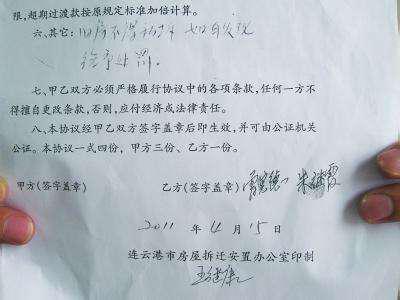 限,超期过渡款按原规定标准加倍计算。
六、其它: 旧房不得
给予处罚。
七、甲乙双方必须严格履行协议中的各项条款,任何一方不
得擅自更改条款,否则,应付经济或法律责任。
八、本协议经甲乙双方签字盖章后即生效,并可由公证机关
公证。本协议一式四份,甲方三份、乙方一份。
甲方(签字盖章) 乙方(签字盖章)
2011 年 4 月 15 日
连云港市房屋拆迁安置办公室印制